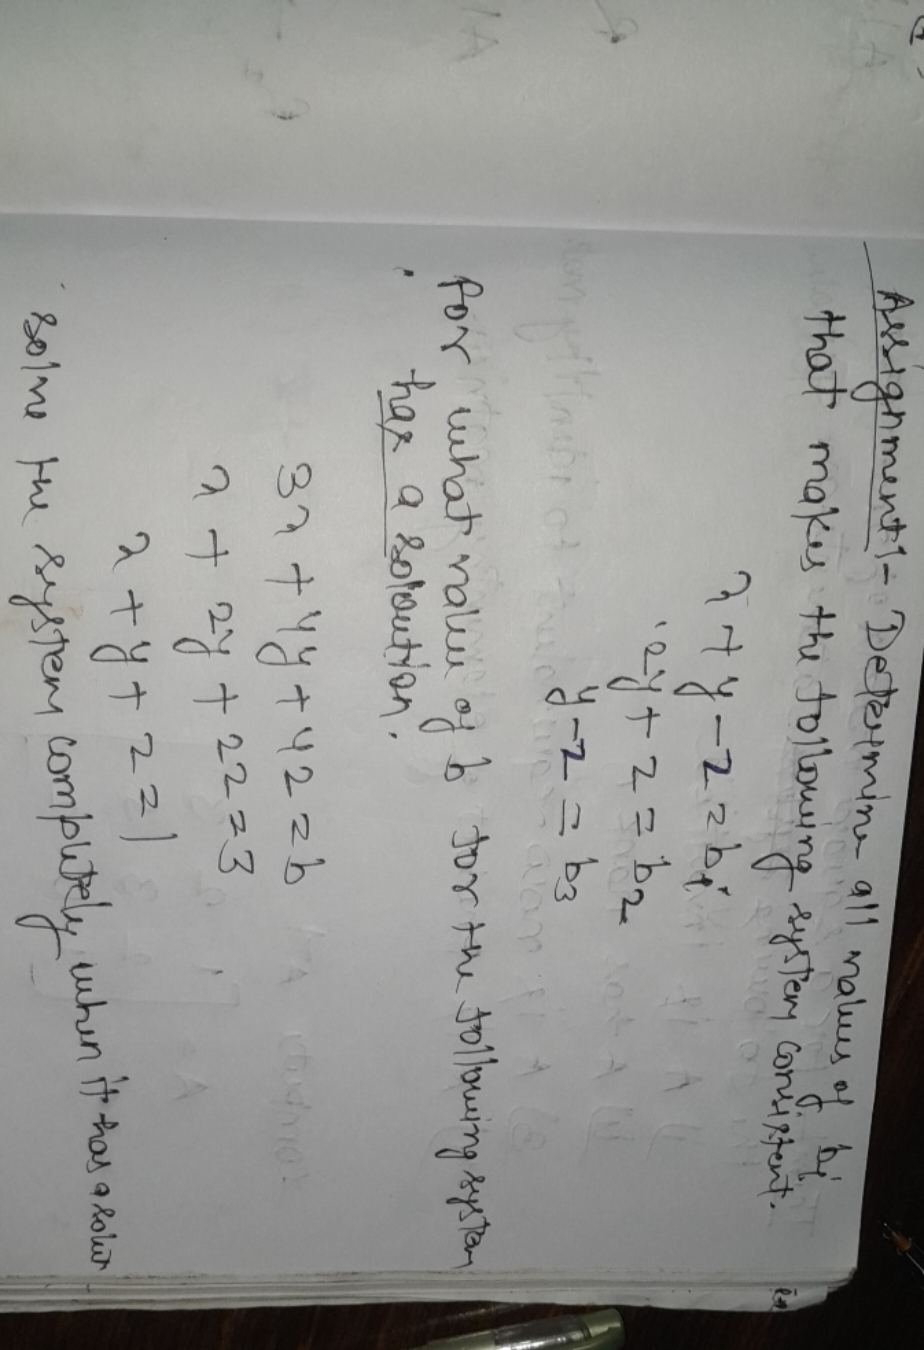 Assignment:- Determine all values of bi
that makes the following system consistent.
x + y - z = b1
2y + z = b2
y - z = b3
for what value of b for the following system
has a soloution.
3x + 4y + 4z = b
x + 2y + 2z = 3
x + y + z = 1
solve the system completely when it has a solut